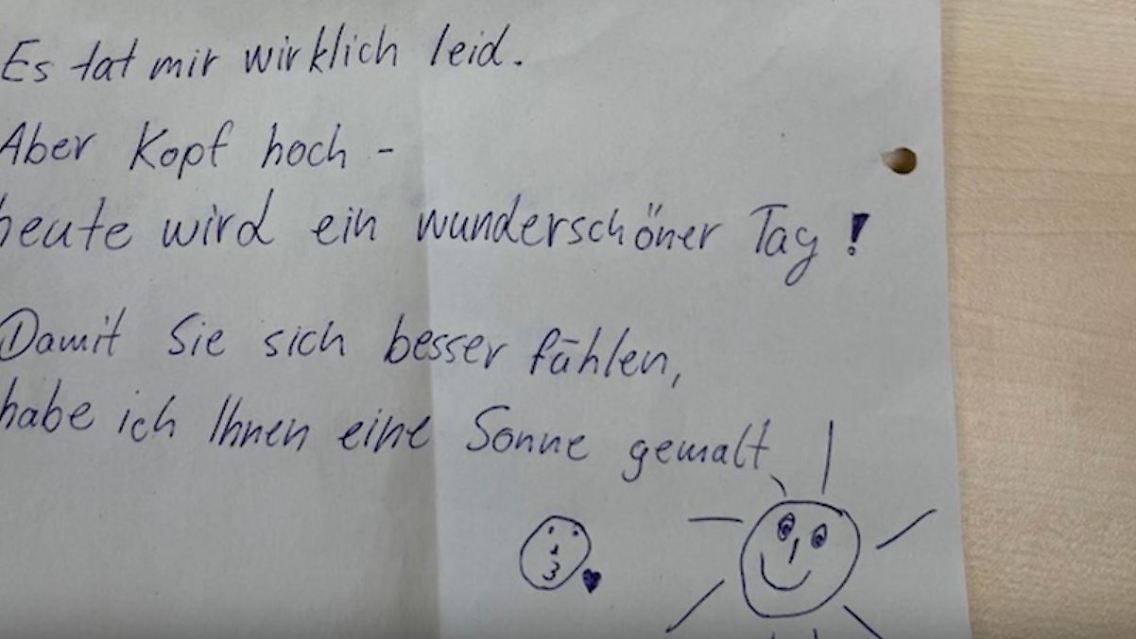 Es tat mir wirklich leid.
Aber Kopf hoch -
heute wird ein wunderschöner Tag!
Damit Sie sich besser fühlen,
habe ich Ihnen eine Sonne gemalt